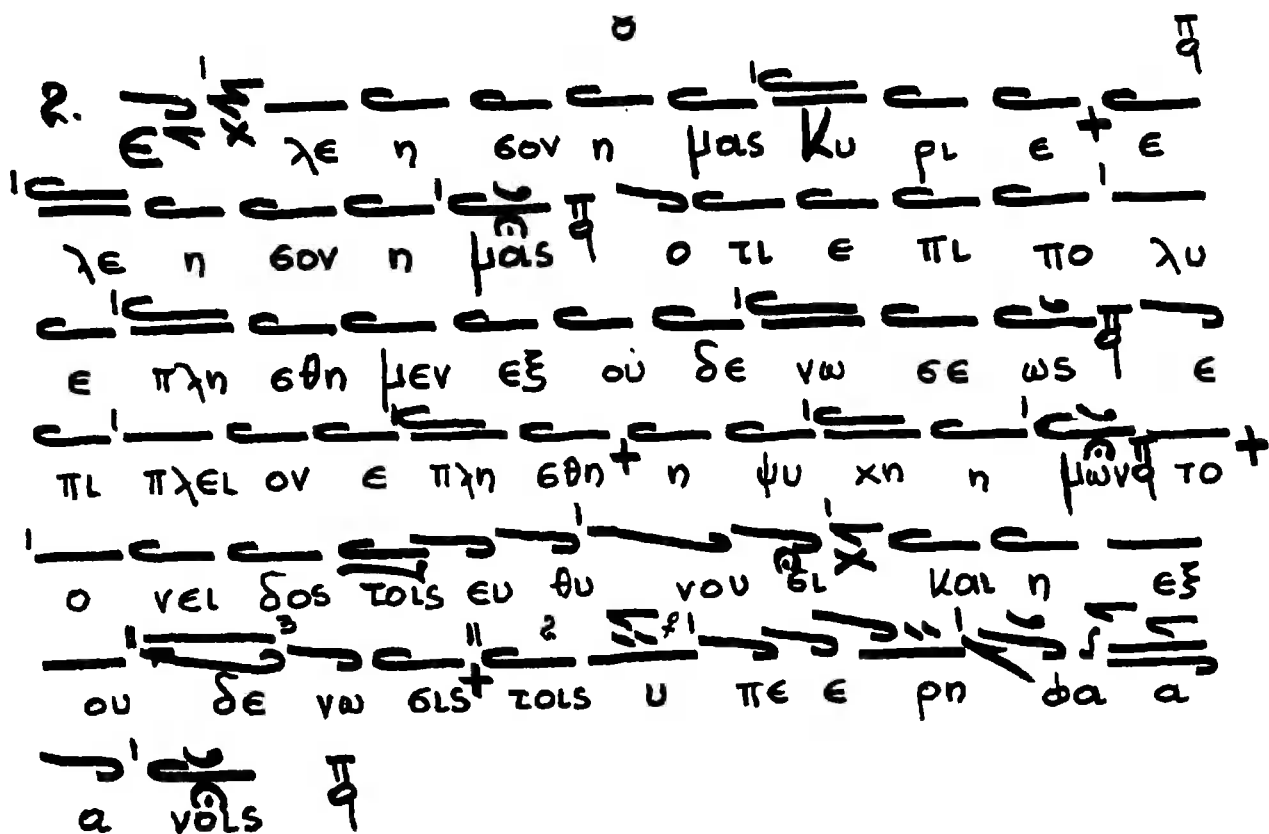 2. Ε λε η σον η μας Κυ ρι ε ε
λε η σον η μας ο τι ε πι πο λυ
ε πλη σθη μεν εξ ού δε νω σε ως ε
πι πλει ον ε πλη σθη η ψυ χη η μών το
ο νει δος τοις ευ θυ νου σι και η εξ
ου δε νω σις τοις υ πε ε ρη φα α
α νοις